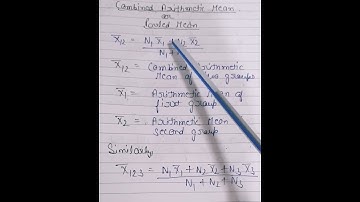 Combined Arithmetic Mean
or
Pooled Mean
X̄12 = N1 X̄1 + N2 X̄2
N1 +
X̄12 = Combined Arithmetic
Mean of two groups
X̄1 = Arithmetic Mean of
first group
X̄2 = Arithmetic Mean
second group
Similarly,
X̄123 = N1 X̄1 + N2 X̄2 + N3 X̄3
N1 + N2 + N3